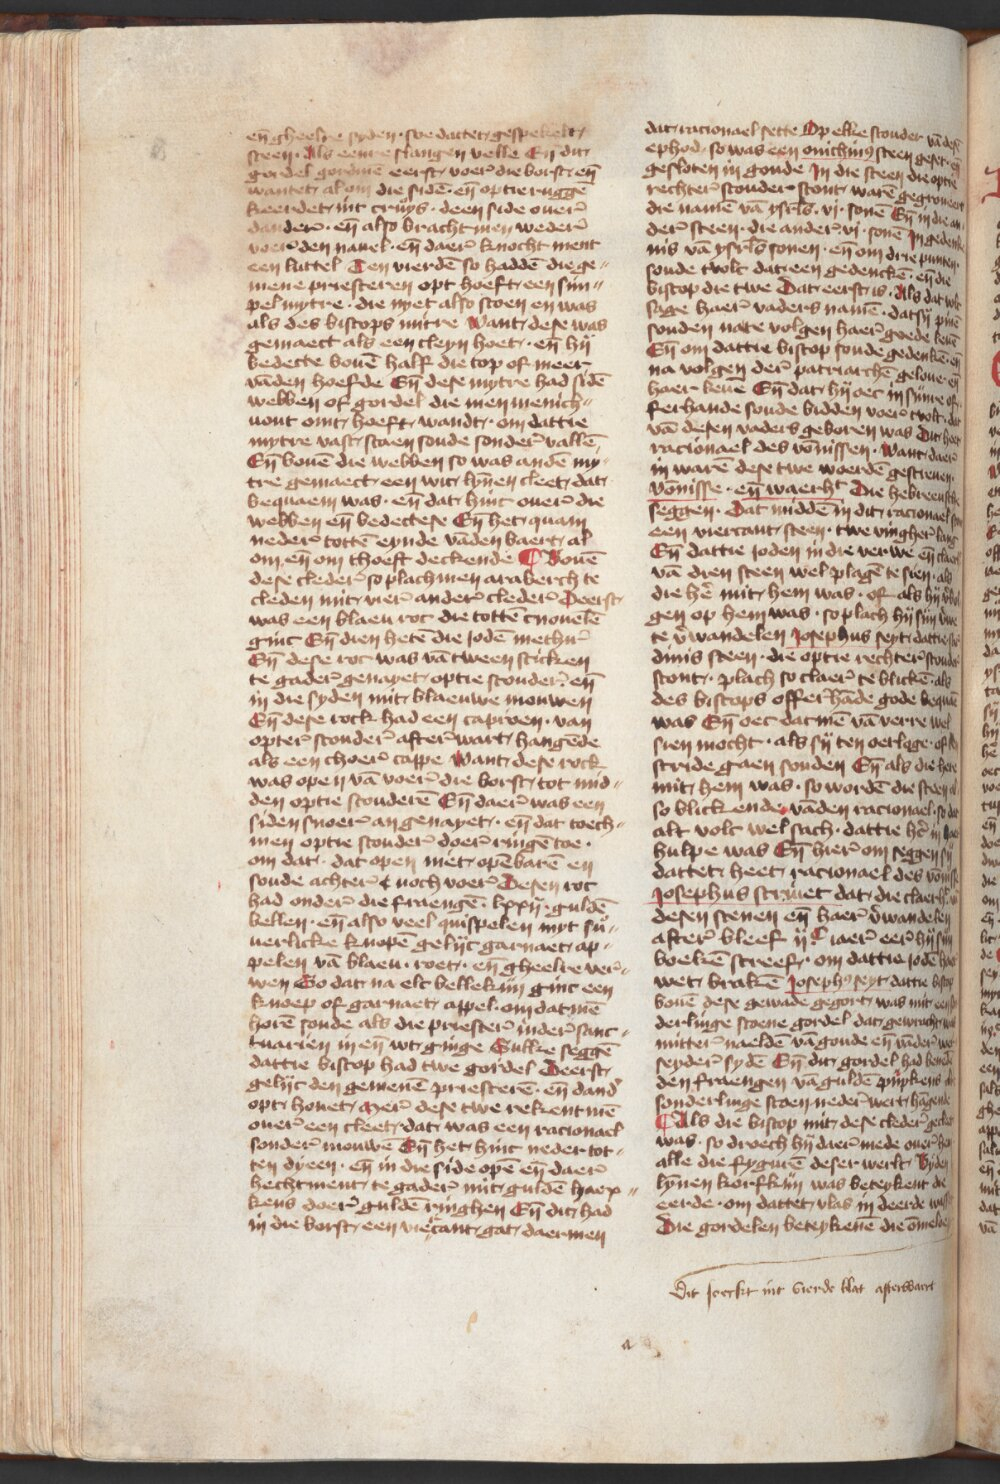 en̄ gheelre syden · soe dattet gespekelt
scheen · Als eenre slangen velle En̄ dit
gordel gordmē eerst voer̄ die borst en̄
wantet al om die sidē · en̄ op tie ruggē
keerdet int cruys · deen side ouer̄
dander̄ · en̄ also bracht men weder̄
voer̄ den nauel · en̄ daer̄ knocht ment
een luttel Ten vierdē so haddē die ge⸗
mene priesteren opt hoeft een sim⸗
pel mytre · die nyet also scoen en was
als des biscops mitre Want dese was
gemaect als een cleyn hoet · en̄ hy
bedecte bouē half die top of meer
vāden hoefde En̄ dese mytre had sidē
webben of gordel die men menich⸗
uout omt hoeft wandt · om dattie
mytre vast staen soude sonder̄ vallē
En̄ bouē die webben so was andē my⸗
tre gemaect een wit lynen cleet dat
bequaem was · en̄ dat hinc ouer̄ die
webben en̄ bedectese En̄ het quam
neder̄ tottē eynde vāden baert al
om en̄ om thoeft deckende Bouē
dese cleder̄ so plach men araberch te
cleden mit vier̄ ander̄ cleder̄ Deerst
was een blaeu roc die tottē cnouelē
ginc En̄ dien hetē die jodē methur̄
En̄ dese roc was vā tween sticken
te gader̄ genayet optie scouder̄ · en̄
in die syden mit blaeuwe mouwen
En̄ dese rock had een caproen · van
opter̄ scouder̄ after̄ wart hangēde
als een choer̄ cappe Want dese rock
was open vā voer̄ die borst tot mid⸗
den optie scouderē En̄ daer̄ was een
siden snoer̄ an genayet · en̄ dat toech⸗
men optie scouder̄ doer̄ ringē toe ·
om dat · dat open niet opēbarē en
soude achter̄ noch voer̄ Desen roc
had onder̄ die fraengē · lxxij · guldē
bellen · en̄ also veel quispelen myt su⸗
uerlicke knopē gelijc garnaet ap⸗
pelen vā blaeu · roet · en̄ gheelre ver̄⸗
wen So dat na elc bellekijn ginc een
knoep of garnaet appel · om datmē
horē soude als die priester̄ inder̄ sanc⸗
tuarien in en̄ wt ginge Sulke seggē
dattie biscop had twe gordel Deerst
gelijc den gemenē priesterē · en̄ dand̄
opt houet Mer̄ dese twe rekent mē
ouer̄ een cleet dat was een racionael
sonder̄ mouwē En̄ het hinc neder tot⸗
ten dyeen · en̄ in die side opē en̄ daer̄
hechtment te gader̄ mit guldē haep⸗
kens doer̄ guldē ringhen En̄ dit had
in die borst een viercant gat daermen
dat racionael sette Op elke scouder vā dese
ephod · so was een onichinus steen geset · en̄
gesloten in goude In die steen die optie
rechter̄ scouder̄ stont warē gegroueert
die namē vā ysrl̄s · vi · sonē En̄ in die an
der̄ steen · die ander̄ vi · sonē In gedenke
nis vā ysrl̄s sonen · en̄ om drie punten ·
soude tvolc dat een gedenckē · en̄ die
biscop die twe Dat eerst is · Als dat volc
sage haer̄ vaders namē · dat sy pinē
souden nate volgen haer̄ goede leuē
En̄ om dattie biscop soude gedenkē · en̄
na volgen der̄ patriarchē geloue · en̄
haer leuē En̄ dat hy oec in synre of
ferhande soude bidden voer̄ tvolc · dat
vā desen vaders geboren was Dit heet
racionael des vōnissen · Want daer̄
in warē dese twe woerdē gescreuen ·
vōnisse · en̄ waerht̄ Die hebreeusche
seggen · Dat middē in dit racionael
een viercant steen · twe vingher̄ lanc
En̄ dattie joden in die verwe en̄ claerh
vā dien steen wel plagē te sien · als
die her̄ mit hem was · of als hy v̄bol
gen op hem was · so plach hy syn v̄we
te v̄wandelen Josephus seyt dattie
dinis steen · die optie rechter̄ scouder
stont · plach so claer̄ te blickē · als
des biscops offerhāde gode bequaē
was En̄ oec datmē vā verre wel
sien mocht · als sy ten oerloge · of te
stride gaen souden En̄ als die here
mit hem was · so wordē die steen al
so blickende vāden racionael · so dat
alt volc wel sach · dattie her̄ in haer
hulpe was En̄ hier̄ om seggen sy
dattet heet racionael des vōnisse
Josephus scriuet dat die claerht̄
desen stenen en̄ haer̄ v̄wandelen
after̄ bleef ij c iaer̄ eer̄ hy syn
boeken screef · om dattie jodē haer
wet brakē Josephus seyt dattie biscop
bouē dese gewade gegort was mit een
derlinge scoene gordel dat gewracht was
mitter̄ naeldē vā goude en̄ vāder̄
seyder̄ sydē En̄ dit gordel had beneden
den fraengen vā guldē
sonderlinge scoen neder̄wert hāgende
Als die biscop mit dese cleder̄ gecleet
was · so droech hy daer̄ mede ouer̄ hem
alle die fyguren deser werlt Byden
lynen korfkijn was beteykent die
eerde · om dattet vlas in deerde wasset
Die gordelen beteykenē die
Dit soeckt int vierde blat afterwaert
a